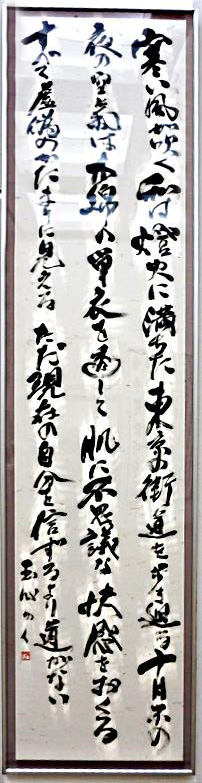 寒い風が吹く私は燈火に満ちた東京の街道を歩き廻る十月末の
夜の空氣は木綿の単衣を透して肌に不思議な快感をおくる
すべて虚偽のかたまりに見えるただ現在の自分を信ずるより道がない